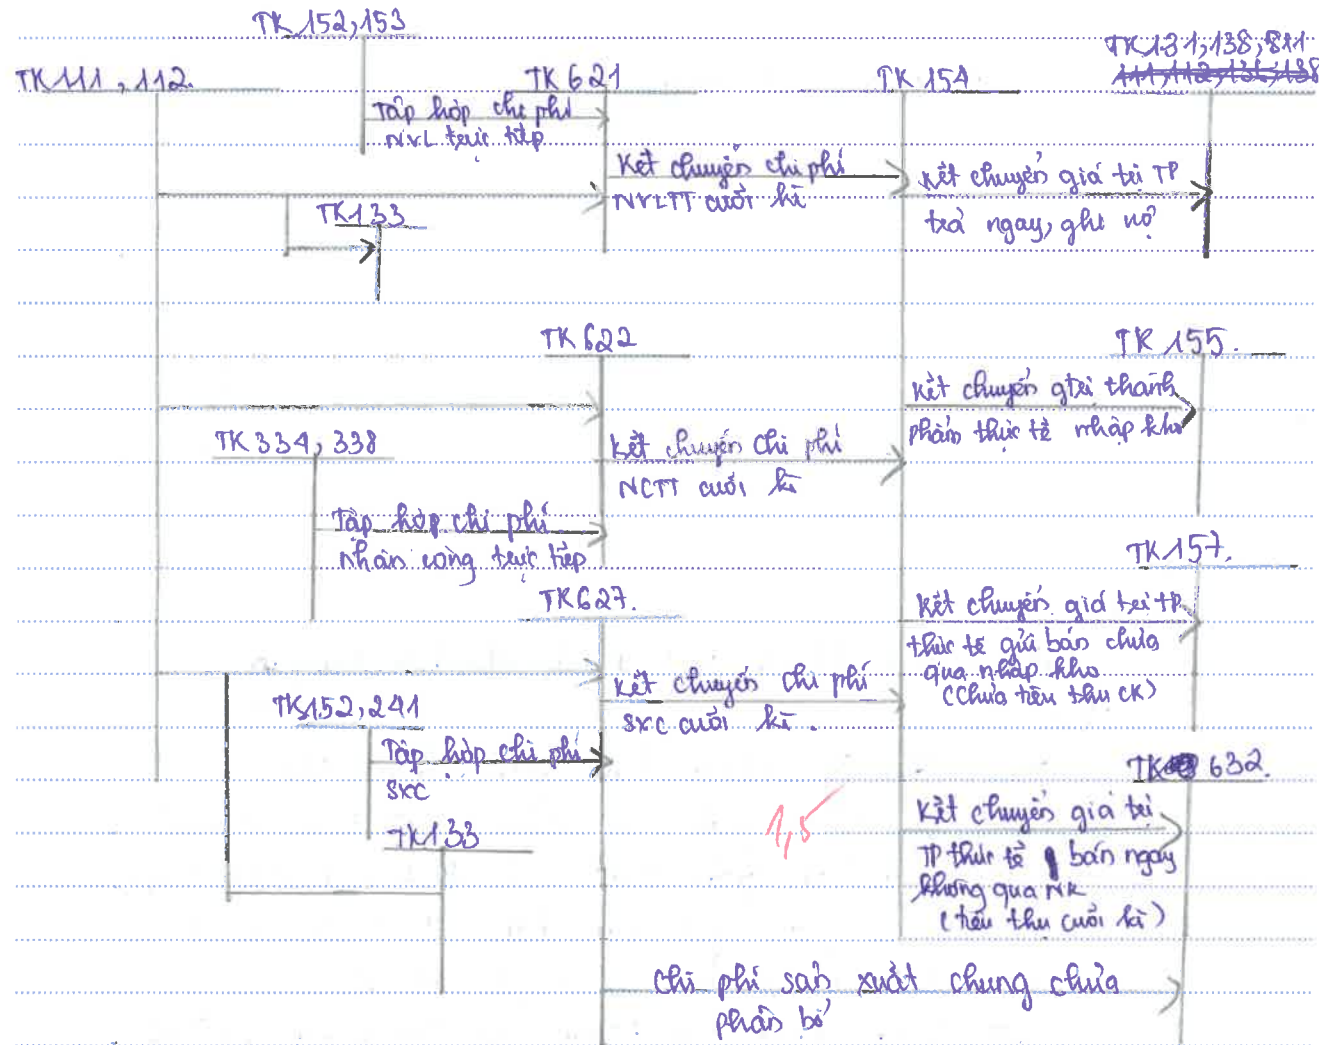 TK 152, 153
TK 131, 138, 811
111, 112, 131, 138
TK 111, 112.
TK 621
TK 154
Tập hợp chi phí
NVL trực tiếp
Kết chuyển chi phí
NVLTT cuối kì
Kết chuyển giá trị TP
trả ngay, ghi nợ
TK 133
TK 622
TK 155.
Kết chuyển gtrị thành
phẩm thực tế nhập kho
TK 334, 338
Kết chuyển chi phí
NCTT cuối kì
Tập hợp chi phí
nhân công trực tiếp
TK 157.
TK 627.
Kết chuyển giá trị TP
thực tế gửi bán chưa
qua nhập kho
(Chưa tiêu thụ CK)
Kết chuyển chi phí
SXC cuối kì.
TK 152, 241
Tập hợp chi phí
SXC
TK 632.
TK 133
1,5
Kết chuyển giá trị
TP thực tế bán ngay
không qua NK
(tiêu thụ cuối kì)
Chi phí sản xuất chung chưa
phân bổ